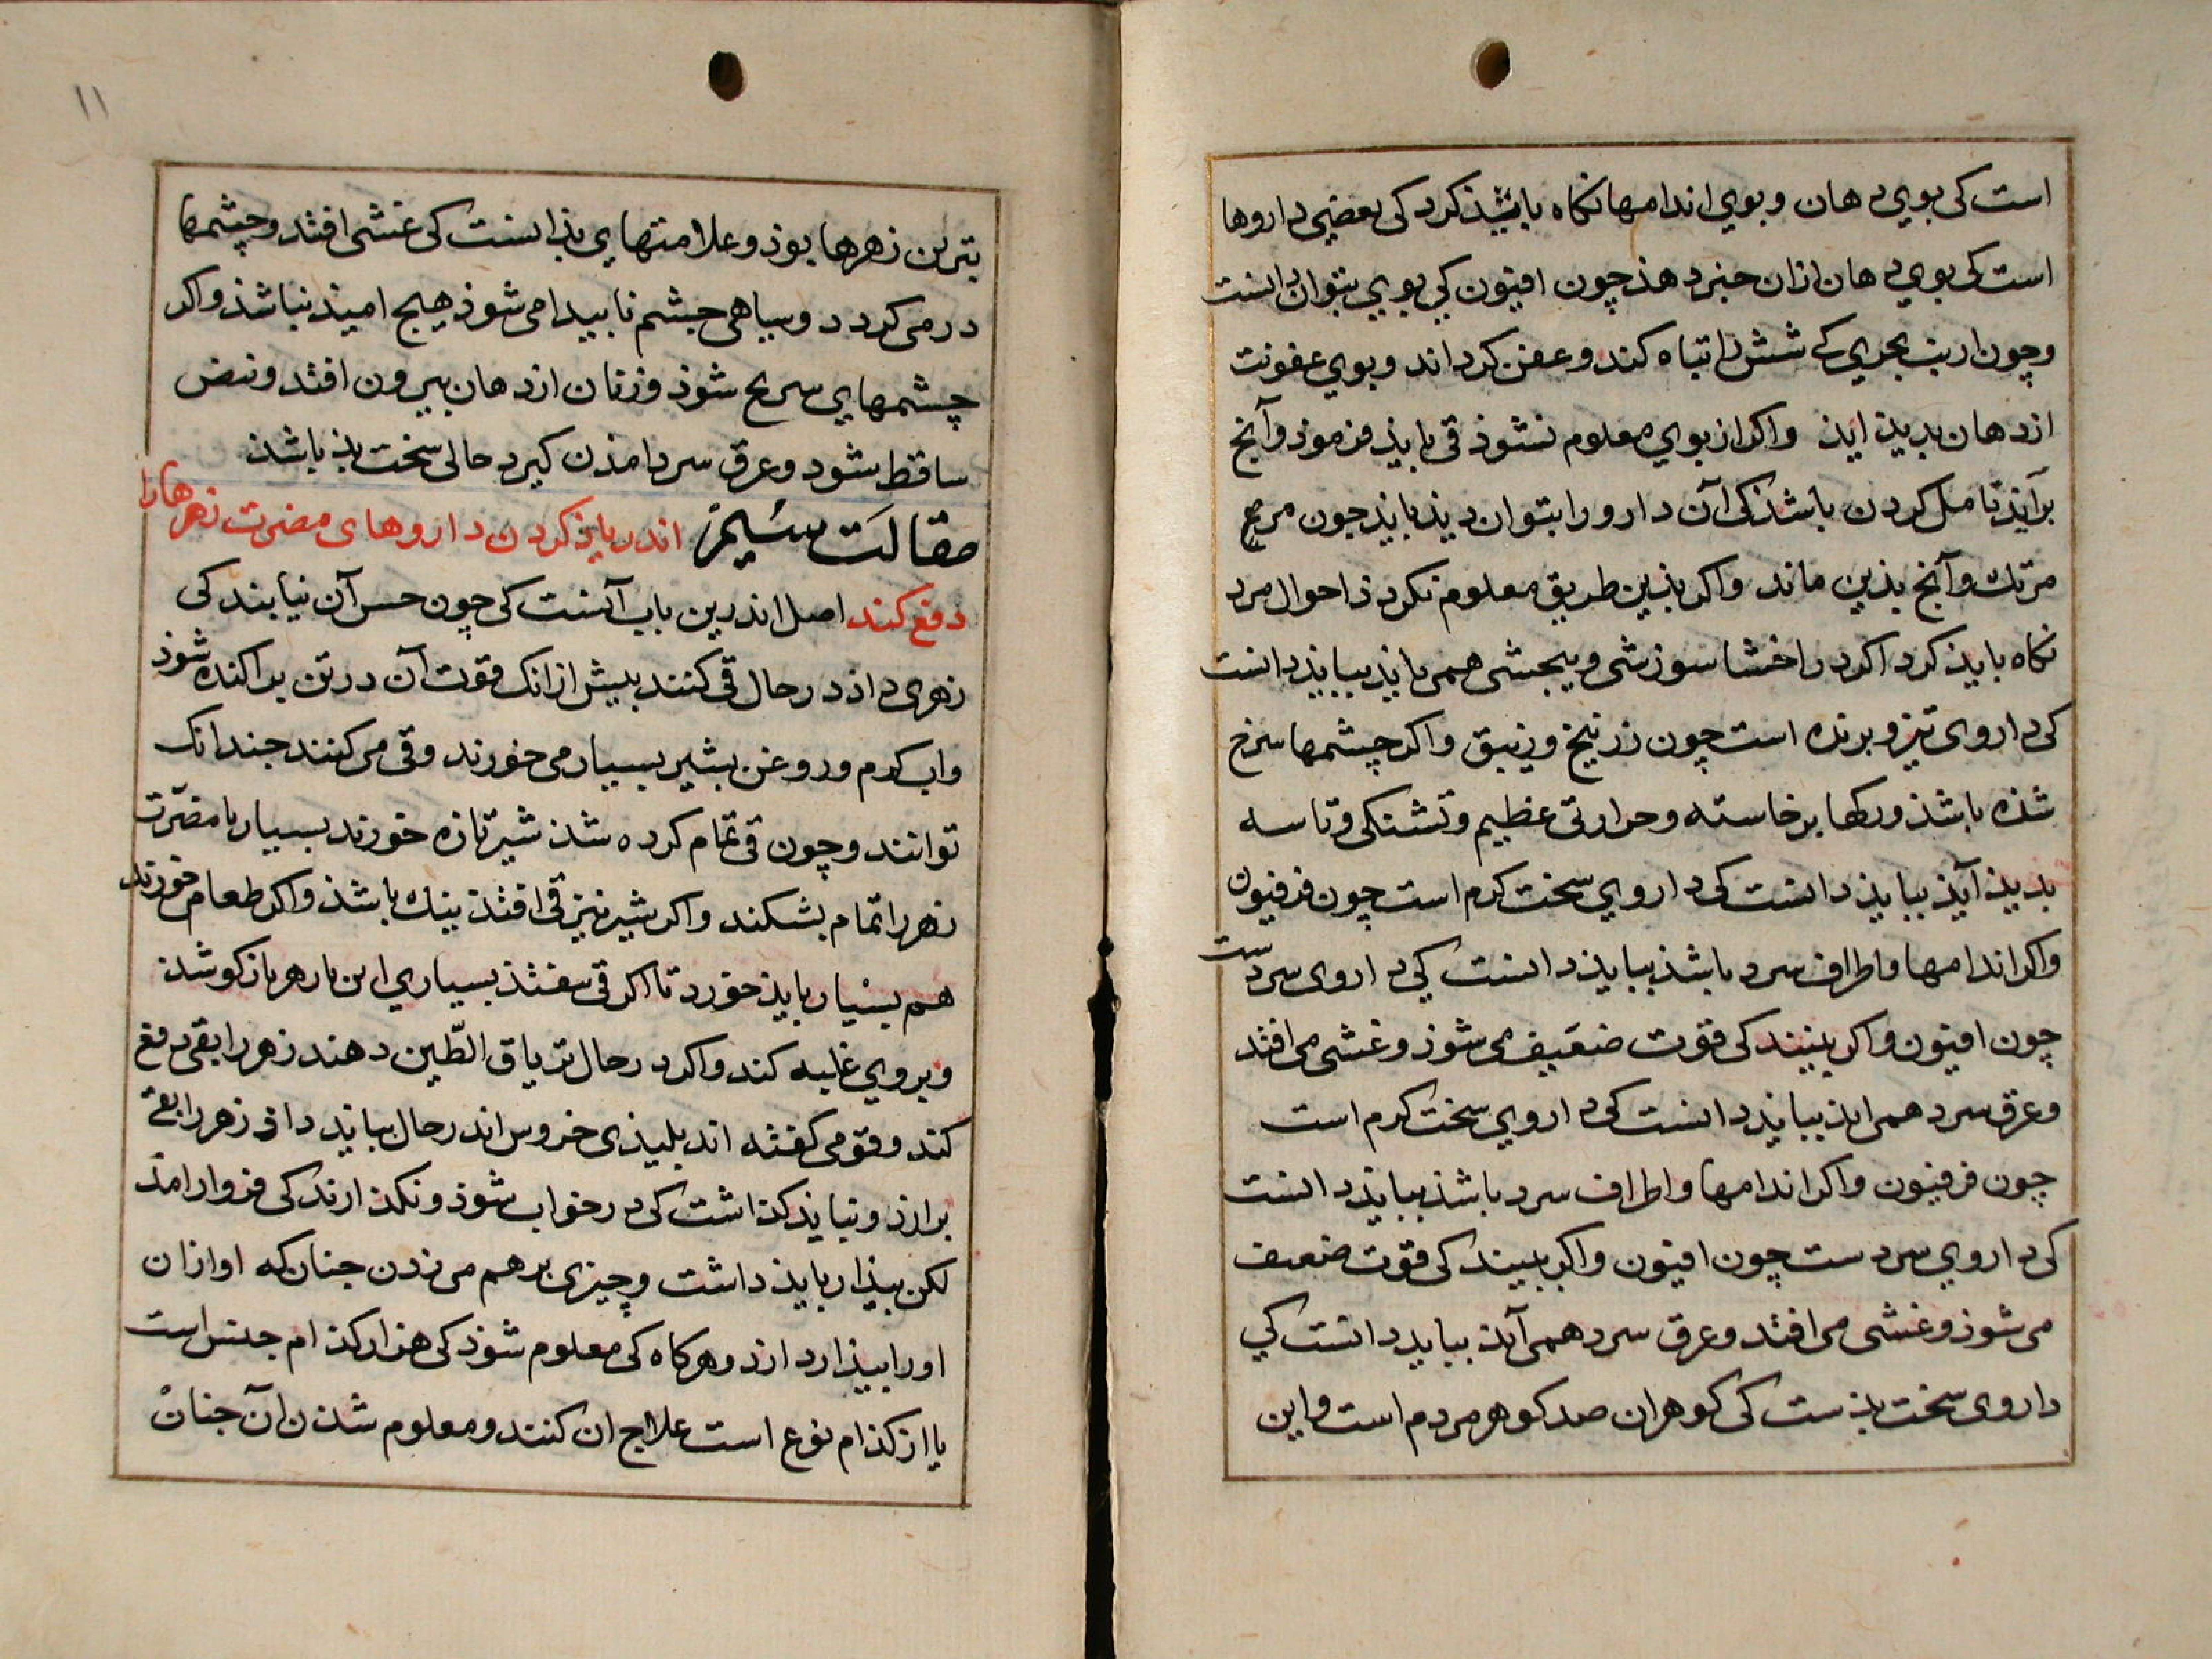 است کی بوی دهان و بوی اندامها نکاه بایذ کرد کی بعضی داروها
است کی بوی دهان ازان خبر دهذ چون افیون کی بویی بتوان دانست
وچون ارنب بحری کی شش را تباه کند وعفن کرداند وبوی عفونت
ازدهان بدیذ ایذ واکر از بوی معلوم نشوذ قی بایذ فرموذ وآنچ
برآیذ تامل کردن باشذ کی آن دارو را بتوان دیذ یا نه چون
مرتك وآنچ بذین ماند واکر بذین طریق معلوم نکردذ احوال مرد
نکاه بایذ کرد اکر در احشا سوزشی و پیچشی همی یابذ ببایذ دانست
کی داروی تیز و برنده است چون زرنیخ وزیبق واکر چشمها سرخ
شذه باشذ ورکها برخاسته وحرارتی عظیم وتشنکی وتاسه
بدیذ آیذ ببایذ دانست کی داروی سخت کرم است چون فرفیون
واکر اندامها واطراف سرد باشذ ببایذ دانست کی داروی سردست
چون افیون واکر بینند کی قوت ضعیف می شوذ وغشی می افتد
وعرق سرد همی ایذ ببایذ دانست کی داروی سخت کرم است
چون فرفیون واکر اندامها واطراف سرد باشذ ببایذ دانست
کی داروی سردست چون افیون واکر ببیند کی قوت ضعیف
می شوذ وغشی می افتد وعرق سرد همی آیذ ببایذ دانست کی
داروی سخت بذست کی کوهران ضد کوهر مردم است واین
۱۱
بترین زهرها بوذ وعلامتهای بذ انست کی غشی افتد وچشمها
درمی کردد وسیاهی چشم نابیدا می شوذ هیچ امیذ نباشذ واکر
چشمهای سرخ شوذ وزبان ازدهان بیرون افتد ونبض
ساقط شود وعرق سرد امذن کیرد حالی سخت بذ باشذ
مقالت سیم اندر یاذ کردن داروهای مضرت زهرها را
دفع کند اصل اندرین باب آنست کی چون حس آن نیابند کی
زهری داذ درحال قی کنند بیش ازانک قوت آن در تن براکنده شوذ
واب کرم وروغن بشیر بسیار می خورند وقی می کنند چندانک
توانند وچون قی تمام کرده شذ شیر تازه خورند بسیار تا مضرت
زهر را تمام بشکند واکر شیر نیز قی افتذ نیك باشذ واکر طعام خورند
هم بسیار بایذ خورد تا اکر قی نیفتذ بسیاری این با زهر باز کوشذ
وبروی غلبه کند واکر درحال تریاق الطین دهند زهر را بقی دفع
کند وقومی کفته اند بلیذی خروس اندرحال ببایذ داذ زهر را بقی
برارذ ونبایذ کذاشت کی درخواب شوذ ونکذارند کی فروارامذ
لکن بیذار بایذ داشت وچیزی برهم می زدن چنان که اواز ان
اورا بیذار دارذ وهرکاه کی معلوم شوذ کی از کذام جنس است
یا از کذام نوع است علاج ان کنند ومعلوم شذن آن چنان